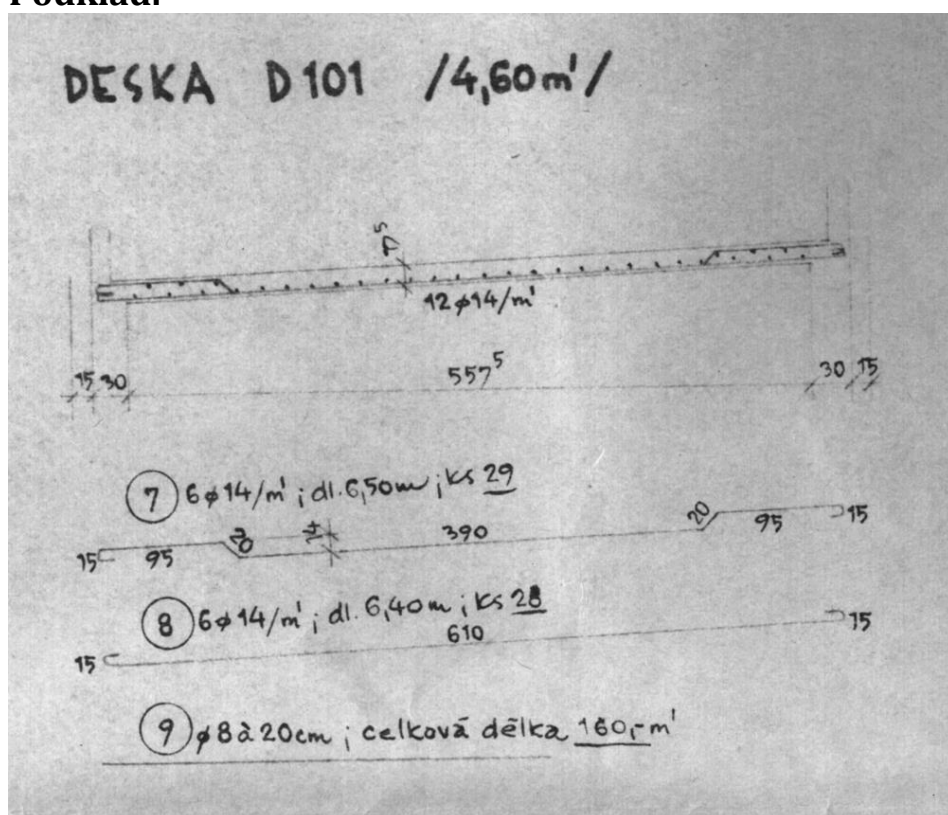 Podklad:
DESKA D101 /4,60m'/
17⁵
12ø14/m'
15 30 557⁵ 30 15
7 6ø14/m' ; dl. 6,50m ; ks 29
15 95 20 14 390 20 95 15
8 6ø14/m' ; dl. 6,40m ; ks 28
15 610 15
9 ø8 à 20cm ; celková délka 160,-m'